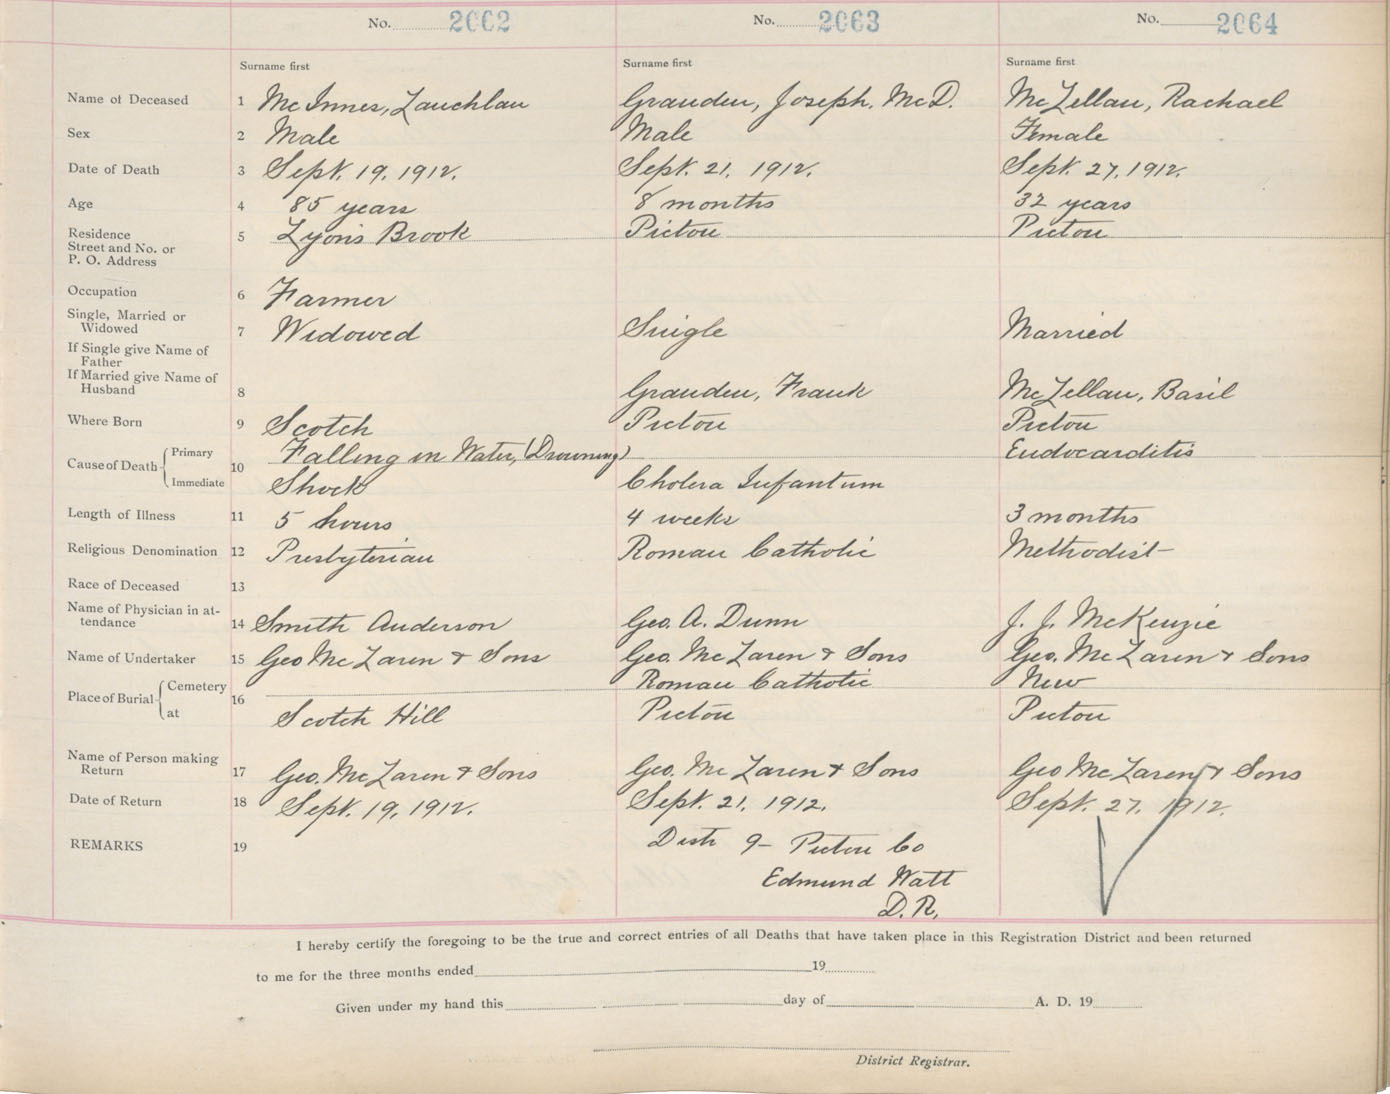 No. 2062 No. 2063 No. 2064
Surname first Surname first Surname first
Name of Deceased 1 McInnes, Lauchlan Granden, Joseph. McD. McLellan, Rachael
Sex 2 Male Male Female
Date of Death 3 Sept. 19, 1912. Sept. 21, 1912. Sept. 27, 1912.
Age 4 85 years 8 months 32 years
Residence 5 Lyons Brook Pictou Pictou
Street and No. or
P. O. Address
Occupation 6 Farmer
Single, Married or
Widowed 7 Widowed Single Married
If Single give Name of
Father
If Married give Name of
Husband 8 Granden, Frank McLellan, Basil
Where Born 9 Scotch Pictou Pictou
Cause of Death 10 Primary Falling in Water, (Drowning) Endocarditis
Immediate Shock Cholera Infantum
Length of Illness 11 5 hours 4 weeks 3 months
Religious Denomination 12 Presbyterian Roman Catholic Methodist
Race of Deceased 13
Name of Physician in at-
tendance 14 Smith Anderson Geo. A. Dunn J. J. McKenzie
Name of Undertaker 15 Geo McLaren & Sons Geo. McLaren & Sons Geo. McLaren & Sons
Place of Burial 16 Cemetery Roman Catholic New
at Scotch Hill Pictou Pictou
Name of Person making
Return 17 Geo. McLaren & Sons Geo. McLaren & Sons Geo McLaren & Sons
Date of Return 18 Sept. 19, 1912. Sept. 21, 1912. Sept. 27, 1912.
REMARKS 19 Dist 9- Pictou Co
Edmund Watt
D. R.
I hereby certify the foregoing to be the true and correct entries of all Deaths that have taken place in this Registration District and been returned
to me for the three months ended 19
Given under my hand this day of A. D. 19
District Registrar.